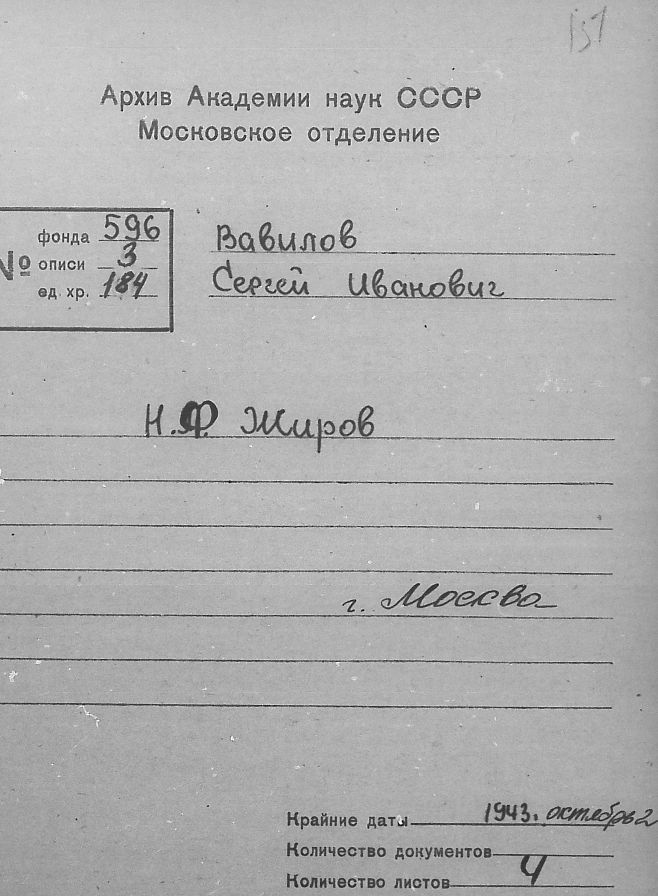 151
Архив Академии наук СССР
Московское отделение
№
фонда 596
описи 3
ед. хр. 184
Вавилов
Сергей Иванович
Н.Ф. Жиров
г. Москва
Крайние даты 1943. октябрь 2
Количество документов
Количество листов 4